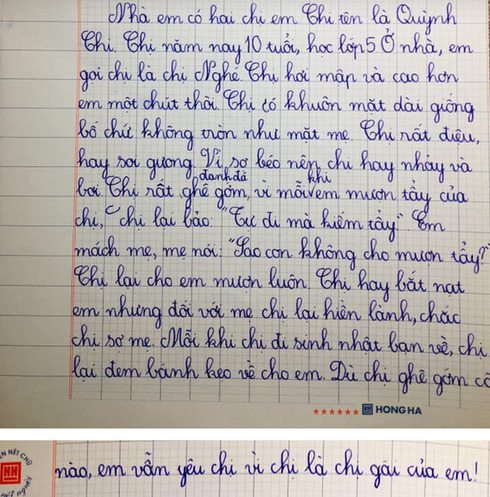 Nhà em có hai chị em. Chị tên là Quỳnh
Chi. Chị năm nay 10 tuổi, học lớp 5. Ở nhà, em
gọi chị là chị Nghé. Chị hơi mập và cao hơn
em một chút thôi. Chị có khuôn mặt dài giống
bố chứ không tròn như mặt mẹ. Chị rất điệu,
hay soi gương. Vì sợ béo nên chị hay nhảy và
bơi. Chị rất đanh đá ghê gớm, vì mỗi khi em mượn tẩy của
chị, chị lại bảo: "Tự đi mà kiếm tẩy". Em
mách mẹ, mẹ nói: "Sao con không cho mượn tẩy?"
Chị lại cho em mượn luôn. Chị hay bắt nạt
em nhưng đối với mẹ chị lại hiền lành, chắc
chị sợ mẹ. Mỗi khi chị đi sinh nhật bạn về, chị
lại đem bánh kẹo về cho em. Dù chị ghê gớm cỡ
HONG HA
nào, em vẫn yêu chị vì chị là chị gái của em!